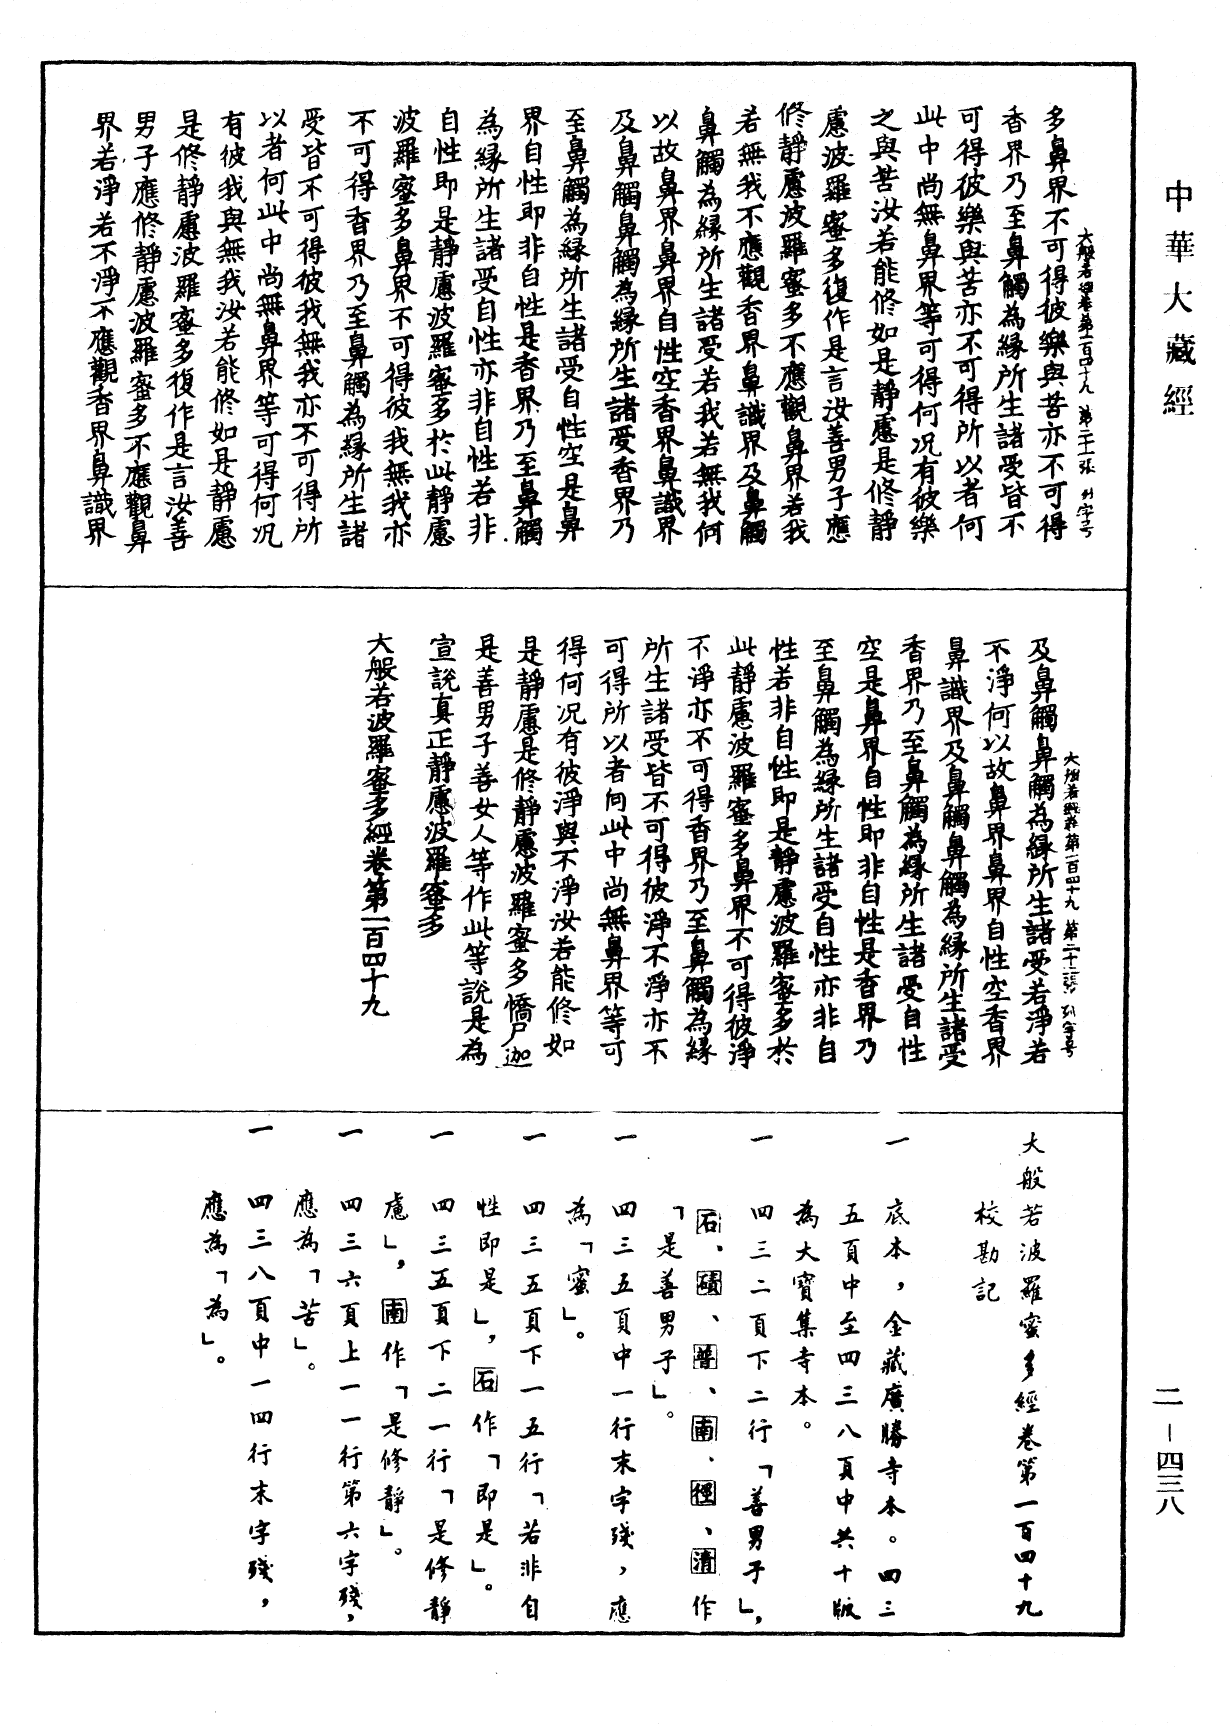 中華大藏經
大般若經卷第一百四十九 第二十一張 列字号
多鼻界不可得彼樂與苦亦不可得
香界乃至鼻觸為緣所生諸受皆不
可得彼樂與苦亦不可得所以者何
此中尚無鼻界等可得何况有彼樂
之與苦汝若能修如是靜慮是修靜
慮波羅蜜多復作是言汝善男子應
修靜慮波羅蜜多不應觀鼻界若我
若無我不應觀香界鼻識界及鼻觸
鼻觸為緣所生諸受若我若無我何
以故鼻界鼻界自性空香界鼻識界
及鼻觸鼻觸為緣所生諸受香界乃
至鼻觸為緣所生諸受自性空是鼻
界自性即非自性是香界乃至鼻觸
為緣所生諸受自性亦非自性若非
自性即是靜慮波羅蜜多於此靜慮
波羅蜜多鼻界不可得彼我無我亦
不可得香界乃至鼻觸為緣所生諸
受皆不可得彼我無我亦不可得所
以者何此中尚無鼻界等可得何况
有彼我與無我汝若能修如是靜慮
是修靜慮波羅蜜多復作是言汝善
男子應修靜慮波羅蜜多不應觀鼻
界若淨若不淨不應觀香界鼻識界
大般若經卷第一百四十九 第二十二張 列字号
及鼻觸鼻觸為緣所生諸受若淨若
不淨何以故鼻界鼻界自性空香界
鼻識界及鼻觸鼻觸為緣所生諸受
香界乃至鼻觸為緣所生諸受自性
空是鼻界自性即非自性是香界乃
至鼻觸為緣所生諸受自性亦非自
性若非自性即是靜慮波羅蜜多於
此靜慮波羅蜜多鼻界不可得彼淨
不淨亦不可得香界乃至鼻觸為緣
所生諸受皆不可得彼淨不淨亦不
可得所以者何此中尚無鼻界等可
得何况有彼淨與不淨汝若能修如
是靜慮是修靜慮波羅蜜多憍尸迦
是善男子善女人等作此等說是為
宣說真正靜慮波羅蜜多
大般若波羅蜜多經卷第一百四十九
大般若波羅蜜多經卷第一百四十九
校勘記
一 底本，金藏廣勝寺本。四三
五頁中至四三八頁中共十版
為大寶集寺本。
一 四三二頁下二行「善男子」，
石、磧、普、南、徑、清作
「是善男子」。
一 四三五頁中一行末字殘，應
為「蜜」。
一 四三五頁下一五行「若非自
性即是」，石作「即是」。
一 四三五頁下二一行「是修靜
慮」，南作「是修靜」。
一 四三六頁上一一行第六字殘，
應為「苦」。
一 四三八頁中一四行末字殘，
應為「為」。
二—四三八